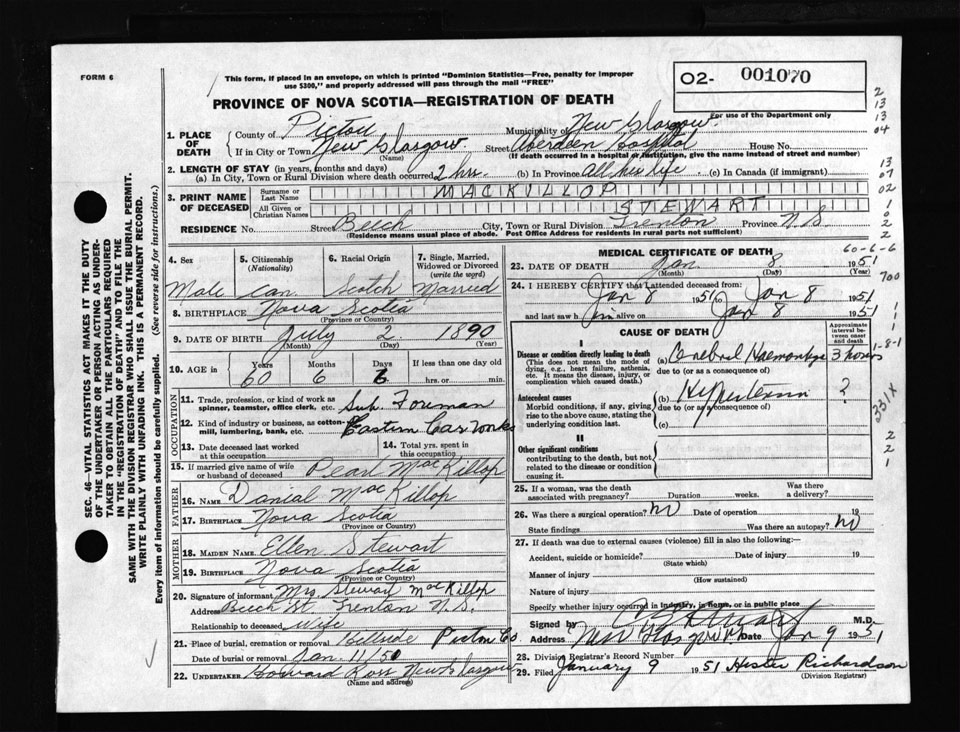 FORM 6
This form, if placed in an envelope, on which is printed "Dominion Statistics—Free, penalty for improper
use $300," and properly addressed will pass through the mail "FREE"
02- 001070
PROVINCE OF NOVA SCOTIA—REGISTRATION OF DEATH
For use of the Department only
1. PLACE OF DEATH
County of Pictou Municipality of New Glasgow
If in City or Town New Glasgow. Street Aberdeen Hospital House No.
(Name) (If death occurred in a hospital or institution, give the name instead of street and number)
2. LENGTH OF STAY (in years, months and days)
(a) In City, Town or Rural Division where death occurred 2 hrs. (b) In Province All his life (c) In Canada (if immigrant)
3. PRINT NAME OF DECEASED
Surname or Last Name MACKILLOP
All Given or Christian Names STEWART
RESIDENCE No. Street Beech City, Town or Rural Division Trenton Province N.S.
(Residence means usual place of abode. Post Office Address for residents in rural parts not sufficient)
4. Sex Male
5. Citizenship (Nationality) Can
6. Racial Origin Scotch
7. Single, Married, Widowed or Divorced (write the word) Married
8. BIRTHPLACE Nova Scotia
(Province or Country)
9. DATE OF BIRTH July 2 1890
(Month) (Day) (Year)
10. AGE in Years 60 Months 6 Days 6 If less than one day old hrs. or min.
OCCUPATION
11. Trade, profession, or kind of work as spinner, teamster, office clerk, etc. Sub. Foreman
12. Kind of industry or business, as cotton-mill, lumbering, bank, etc. Eastern Car Works
13. Date deceased last worked at this occupation
14. Total yrs. spent in this occupation
15. If married give name of wife or husband of deceased Pearl MacKillop
FATHER
16. NAME Danial MacKillop
17. BIRTHPLACE Nova Scotia
(Province or Country)
MOTHER
18. MAIDEN NAME Ellen Stewart
19. BIRTHPLACE Nova Scotia
(Province or Country)
20. Signature of informant Mrs Stewart MacKillop
Address Beech St. Trenton N.S.
Relationship to deceased Wife
21. Place of burial, cremation or removal Hillside Pictou Co
Date of burial or removal Jan. 11/51
22. UNDERTAKER Howard Ross New Glasgow
(Name and address)
MEDICAL CERTIFICATE OF DEATH
60-6-6
23. DATE OF DEATH Jan. 8 1951
(Month) (Day) (Year)
24. I HEREBY CERTIFY that I attended deceased from:
Jan 8 1951 to Jan 8 1951
and last saw him alive on Jan 8 1951
CAUSE OF DEATH
Approximate interval between onset and death
I
Disease or condition directly leading to death
(This does not mean the mode of dying, e.g., heart failure, asthenia, etc. It means the disease, injury, or complication which caused death.)
(a) Cerebral Haemorrhage 3 hours
due to (or as a consequence of)
Antecedent causes
Morbid conditions, if any, giving rise to the above cause, stating the underlying condition last.
(b) Hypertension ?
due to (or as a consequence of)
(c)
II
Other significant conditions
contributing to the death, but not related to the disease or condition causing it.
25. If a woman, was the death associated with pregnancy? Duration weeks. Was there a delivery?
26. Was there a surgical operation? no Date of operation 19
State findings Was there an autopsy? no
27. If death was due to external causes (violence) fill in also the following:—
Accident, suicide or homicide? Date of injury 19
(State which)
Manner of injury
(How sustained)
Nature of injury
Specify whether injury occurred in industry, in home, or in public place
Signed by M.D.
Address New Glasgow Date Jan 9 1951
28. Division Registrar's Record Number
29. Filed January 9 1951 Hester Richardson
(Division Registrar)
SEC. 46—VITAL STATISTICS ACT MAKES IT THE DUTY
OF THE UNDERTAKER OR PERSON ACTING AS UNDER-
TAKER TO OBTAIN ALL THE PARTICULARS REQUIRED
IN THE "REGISTRATION OF DEATH" AND TO FILE THE
SAME WITH THE DIVISION REGISTRAR WHO SHALL ISSUE THE BURIAL PERMIT.
WRITE PLAINLY WITH UNFADING INK. THIS IS A PERMANENT RECORD.
Every item of information should be carefully supplied. (See reverse side for instructions.)
2
13
13
04
13
07
02
1
0
2
2
700
1
1
1
1-8-1
331X
2
2
1